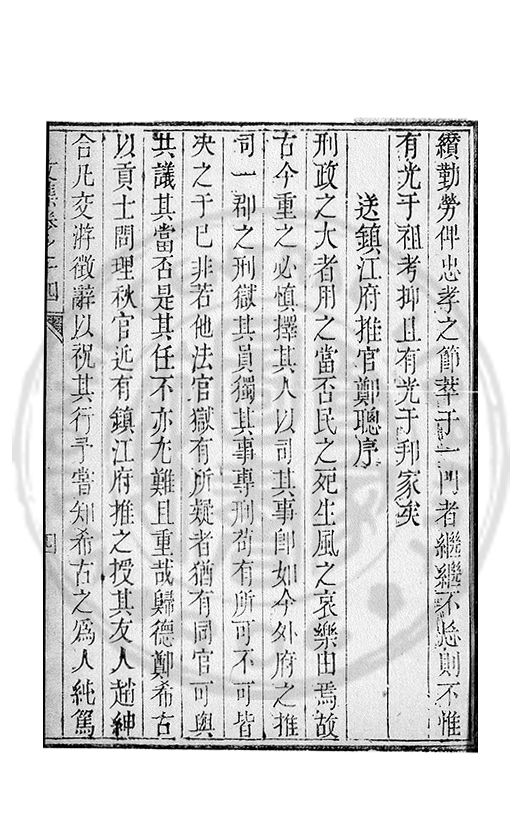 纘勤勞俾忠孝之節萃于一門者繼繼不怠則不惟
有光于祖考抑且有光于邦家矣
送鎮江府推官鄭聰序
刑政之大者用之當否民之死生風之哀樂由焉故
古今重之必慎擇其人以司其事卽如今外府之推
司一郡之刑獄其員獨其事專刑苟有所可不可皆
决之于已非若他法官獄有所疑者猶有同官可與
共議其當否是其任不亦尤難且重哉歸德鄭希古
以貢士問理秋官近有鎮江府推之授其友人趙紳
合凡交游徵辭以祝其行予嘗知希古之爲人純篤
文集卷之十四
四